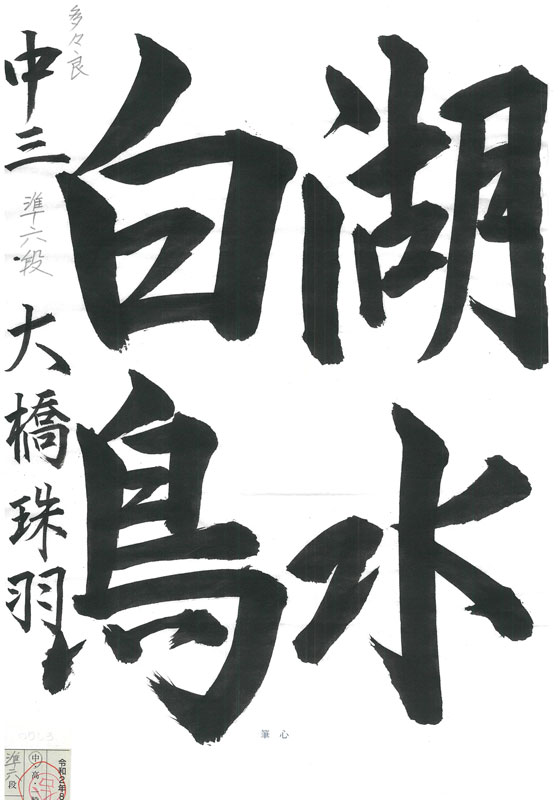 湖水
白鳥
多々良
中三 準六段 大橋珠羽
筆心
令和2年8
中・高・一般
準六段